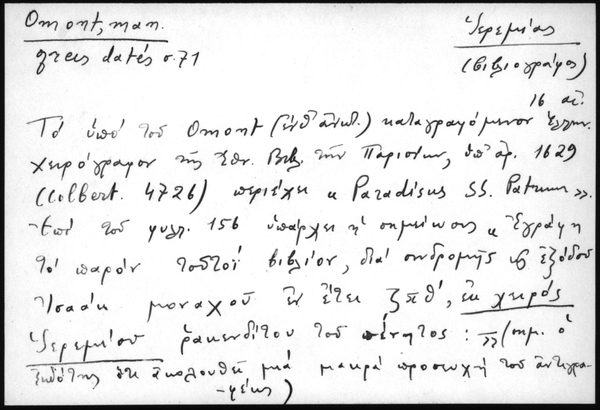 Omont, man.
grecs datés σ. 71
Ἱερεμίας
(βιβλιογράφος)
16 αἰ.
Τό ὑπό τοῦ Omont (ἔνθ' ἀνωτ.) καταγραφόμενον Ἑλλην.
χειρόγραφον τῆς Ἐθν. Βιβ. τῶν Παρισίων, ὑπ' ἀρ. 1629
(Colbert. 4726) περιέχει « Paradisus SS. Patrum ».
Ἐπί τοῦ φυλλ. 156 ὑπάρχει ἡ σημείωσις « Ἐγράφη
τό παρόν τουτοί βιβλίον, διά συνδρομῆς καί ἐξόδου
Ἰσαάκ μοναχοῦ ἐν ἔτει ζπθ', ἐκ χειρός
Ἱερεμίου ῥακενδίτου τοῦ πένητος : » (σημ. ὁ
ἐκδότης ὅτι ἀκολουθεῖ μιά μακρά προσευχή τοῦ ἀντιγρα-
-φέως)